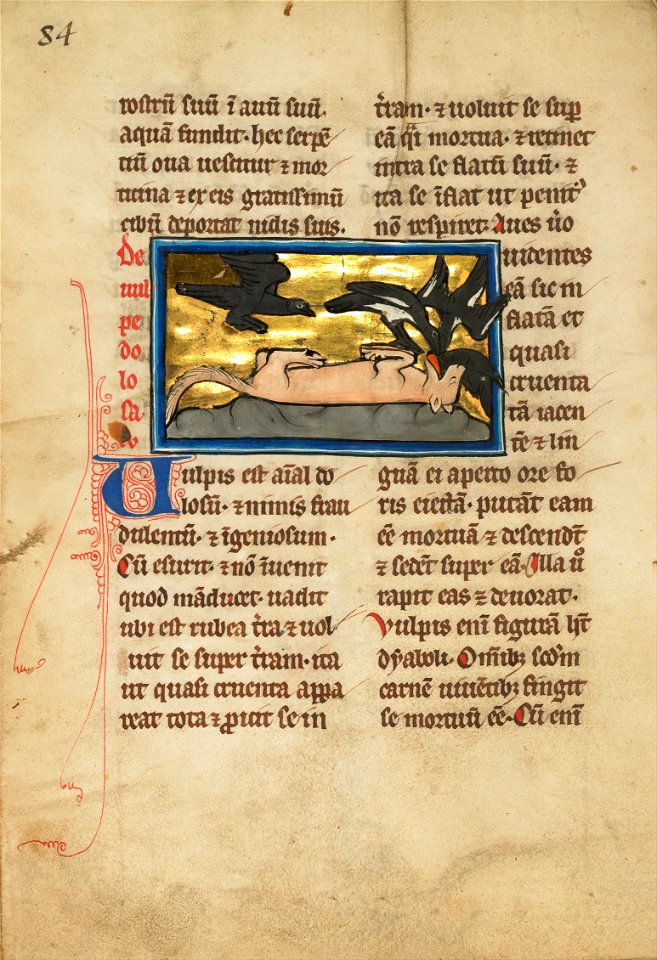 84
rostrū suū ī auū suū.
aquā fundit· hec serpē
tiū oua uescitur ⁊ mor
ticina ⁊ ex eis gratissimū
cibū deportat nidis suis.
De
uul
pe
do
lo
sa·
Uulpis est aīal do
losū· ⁊ nimis frau
dulentū· ⁊ īgeniosum·
Cū esurit· ⁊ nō īuenit
quod māducet· uadit
ubi est rubea t̄ra ⁊ uol
uit se super t̄ram· ita
ut quasi cruenta appa
reat tota ⁊ ꝓicit se in
t̄ram· ⁊ uoluit se suꝑ
eā q̄i mortua· ⁊ retinet
intra se flatū suū· ⁊
ita se īflat ut penit᷒
nō respiret· Aues u̾o
uidentes
eā sic in
flatā et
quasi
cruenta
tā iacen
tē ⁊ lin
guā ei aperto ore fo
ris eiectā· putāt eam
eē mortuā ⁊ descendt̄
⁊ sedēt super eā· Illa u̾
rapit eas ⁊ deuorat·
Vulpis enī figurā h̄t
dyaboli· Om̄ibꝫ scd̄m
carnē uiuētibꝫ fingit
se mortuū eē· Cū enī